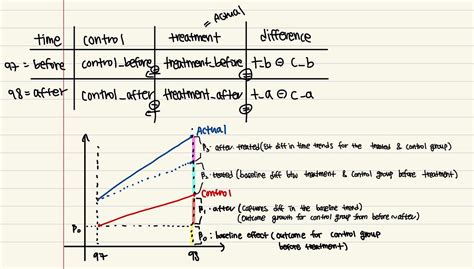 = Actual
time control treatment difference
97 = before control_before treatment_before t_b ⊖ c_b
98 = after control_after treatment_after t_a ⊖ c_a
Actual
β₃ : after·treated (Est diff in time trends for the treated & control group)
β₂ : treated (baseline diff btw treatment & control group before treatment)
Control
β₁ : after (captures diff in the baseline trend)
(Outcome growth for control group from before ~ after)
β₀
β₀ : baseline effect (outcome for control group
before treatment)
97 98